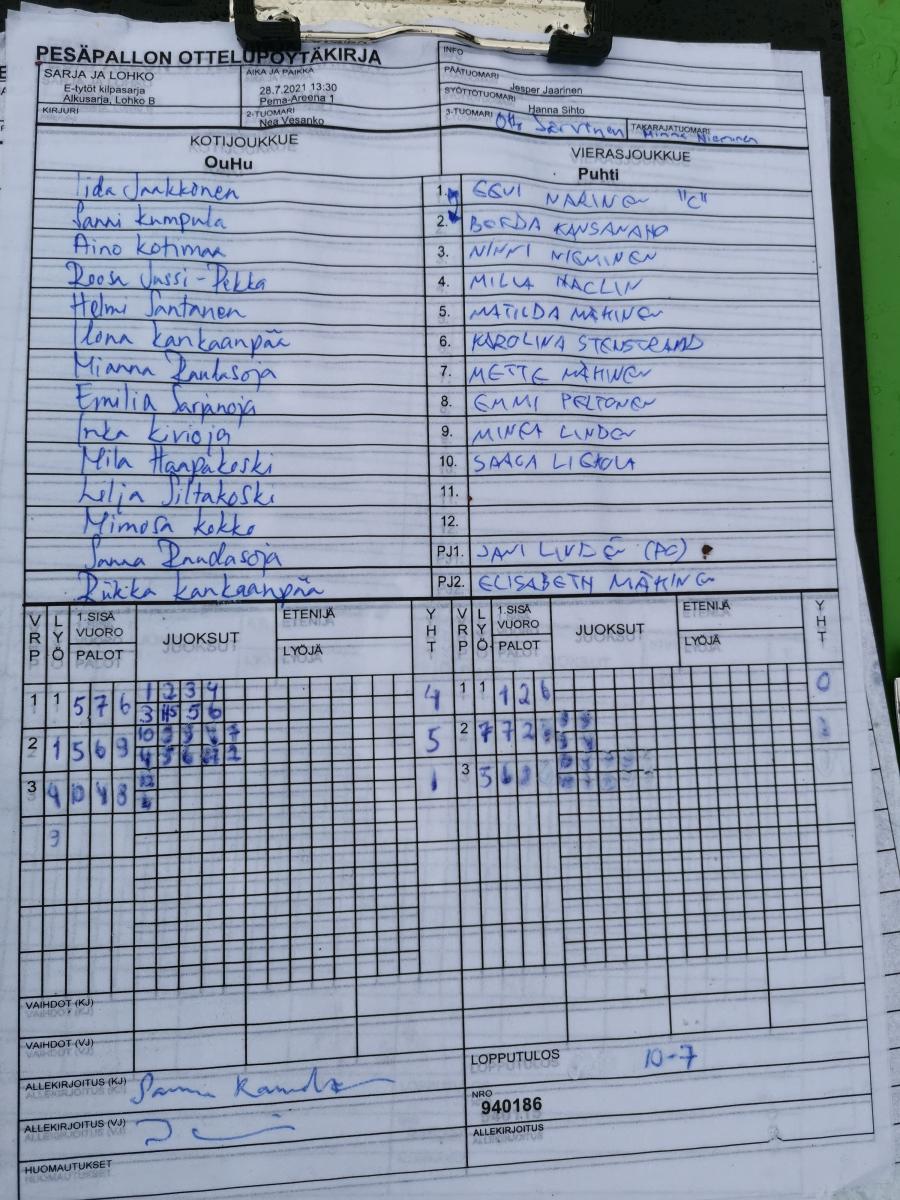 PESÄPALLON OTTELUPÖYTÄKIRJA
INFO
SARJA JA LOHKO
E-tytöt kilpasarja
Alkusarja, Lohko B
AIKA JA PAIKKA
28.7.2021 13:30
Pema-Areena 1
PÄÄTUOMARI
Jesper Jaarinen
SYÖTTÖTUOMARI
Hanna Sihto
KIRJURI
2-TUOMARI
Nea Vesanko
3-TUOMARI Otto Järvinen
TAKARAJATUOMARI
Minna Nieminen
KOTIJOUKKUE
OuHu
VIERASJOUKKUE
Puhti
Iida Jaakkonen 1. EEVI NARINEN "C"
Sanni Kumpula 2. KANSANAHO
Aino Kotimaa 3. NINNI NIEMINEN
Roosa Jussi-Pekka 4. MILLA HACLIN
Helmi Santanen 5. MATILDA MÄKINEN
Ilona Kankaanpää 6. KAROLINA STENSTRAND
Mianna Raudasoja 7. METTE MÄKINEN
Emilia Sarjanoja 8. EMMI PELTONEN
Inka Kivioja 9. MINEA LINDEN
Mila Haapakoski 10. SAAGA
Lilja Siltakoski 11.
Mimosa Kokko 12.
Sanna Raudasoja PJ1. JANI LINDÉN
Riikka Kankaanpää PJ2. ELISABETH MÄKINEN
VRP LYÖ 1.SISÄ VUORO PALOT JUOKSUT ETENIJÄ LYÖJÄ YHT VRP LYÖ 1.SISÄ VUORO PALOT JUOKSUT ETENIJÄ LYÖJÄ YHT
1 1 5 7 6 1 2 3 4 4 1 1 1 2 6 0
3 5 6
2 1 5 6 9 5 2 7 7 2
3 4 10 4 8 1 3 5 6
9
VAIHDOT (KJ)
VAIHDOT (VJ)
LOPPUTULOS 10-7
ALLEKIRJOITUS (KJ)
NRO
940186
ALLEKIRJOITUS (VJ)
ALLEKIRJOITUS
HUOMAUTUKSET